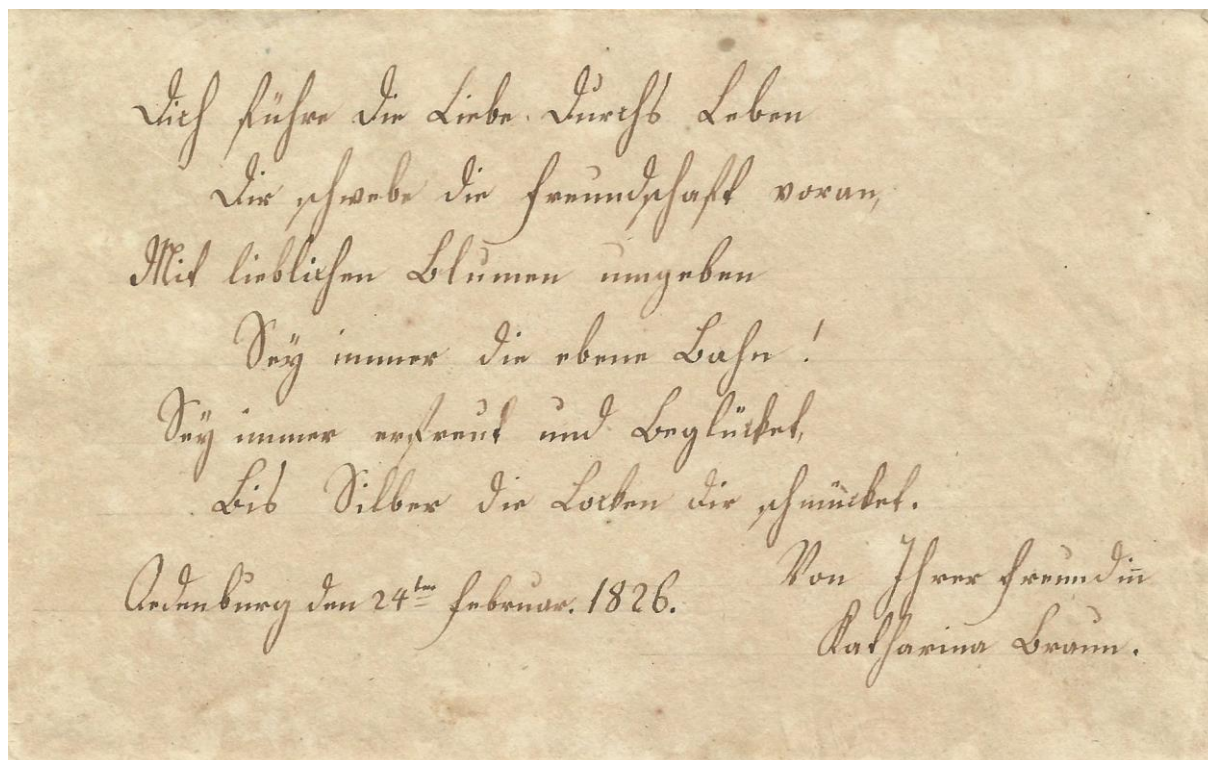 Dich führe die Liebe durchs Leben
Dir schwebe die Freundschaft voran,
Mit lieblichen Blumen umgeben
Sey immer die ebene Bahn!
Sey immer erfreut und Beglücket,
Bis Silber die Locken dir schmücket.
Oedenburg den 24ten Februar. 1826.
Von Ihrer Freundinn
Katharina Braun.